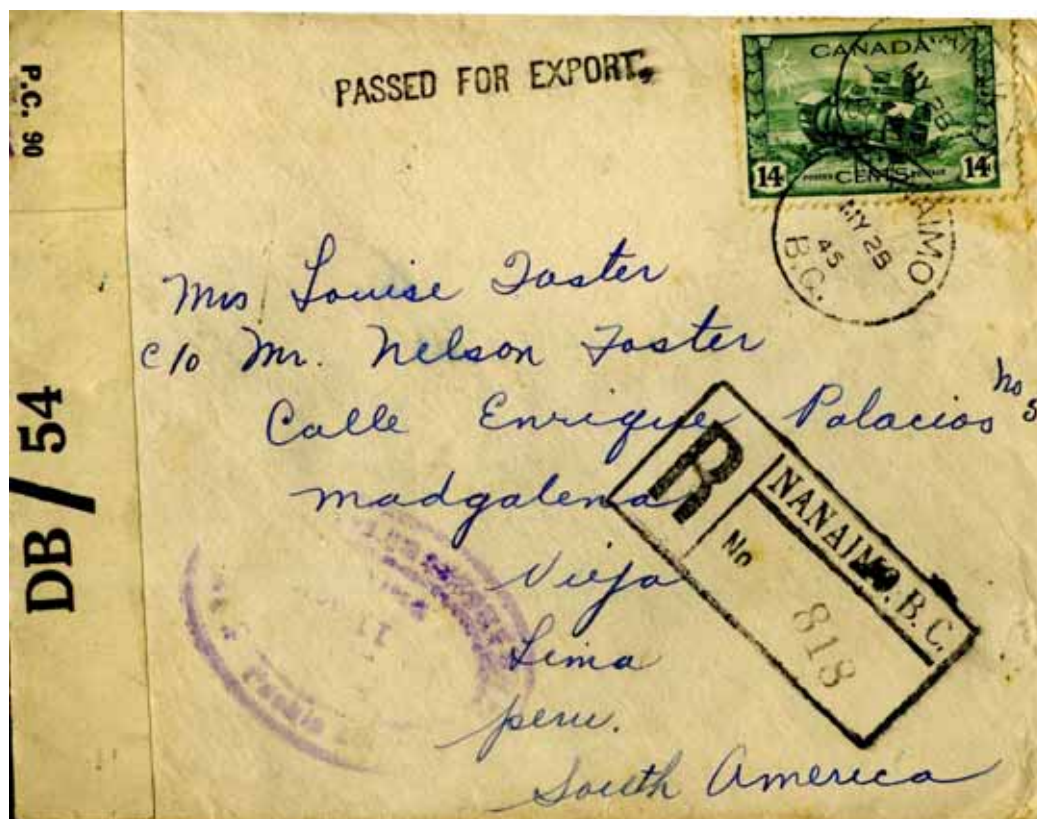 P.C. 90
DB/54
PASSED FOR EXPORT
CANADA
14 CENTS 14
MY 28
NANAIMO
MY 28
45
B.C.
Mrs Louise Foster
c/o Mr. Nelson Foster
Calle Enrique Palacios No
madgalena
Vieja
Lima
peru.
South America
R
NANAIMO, B.C.
No
818